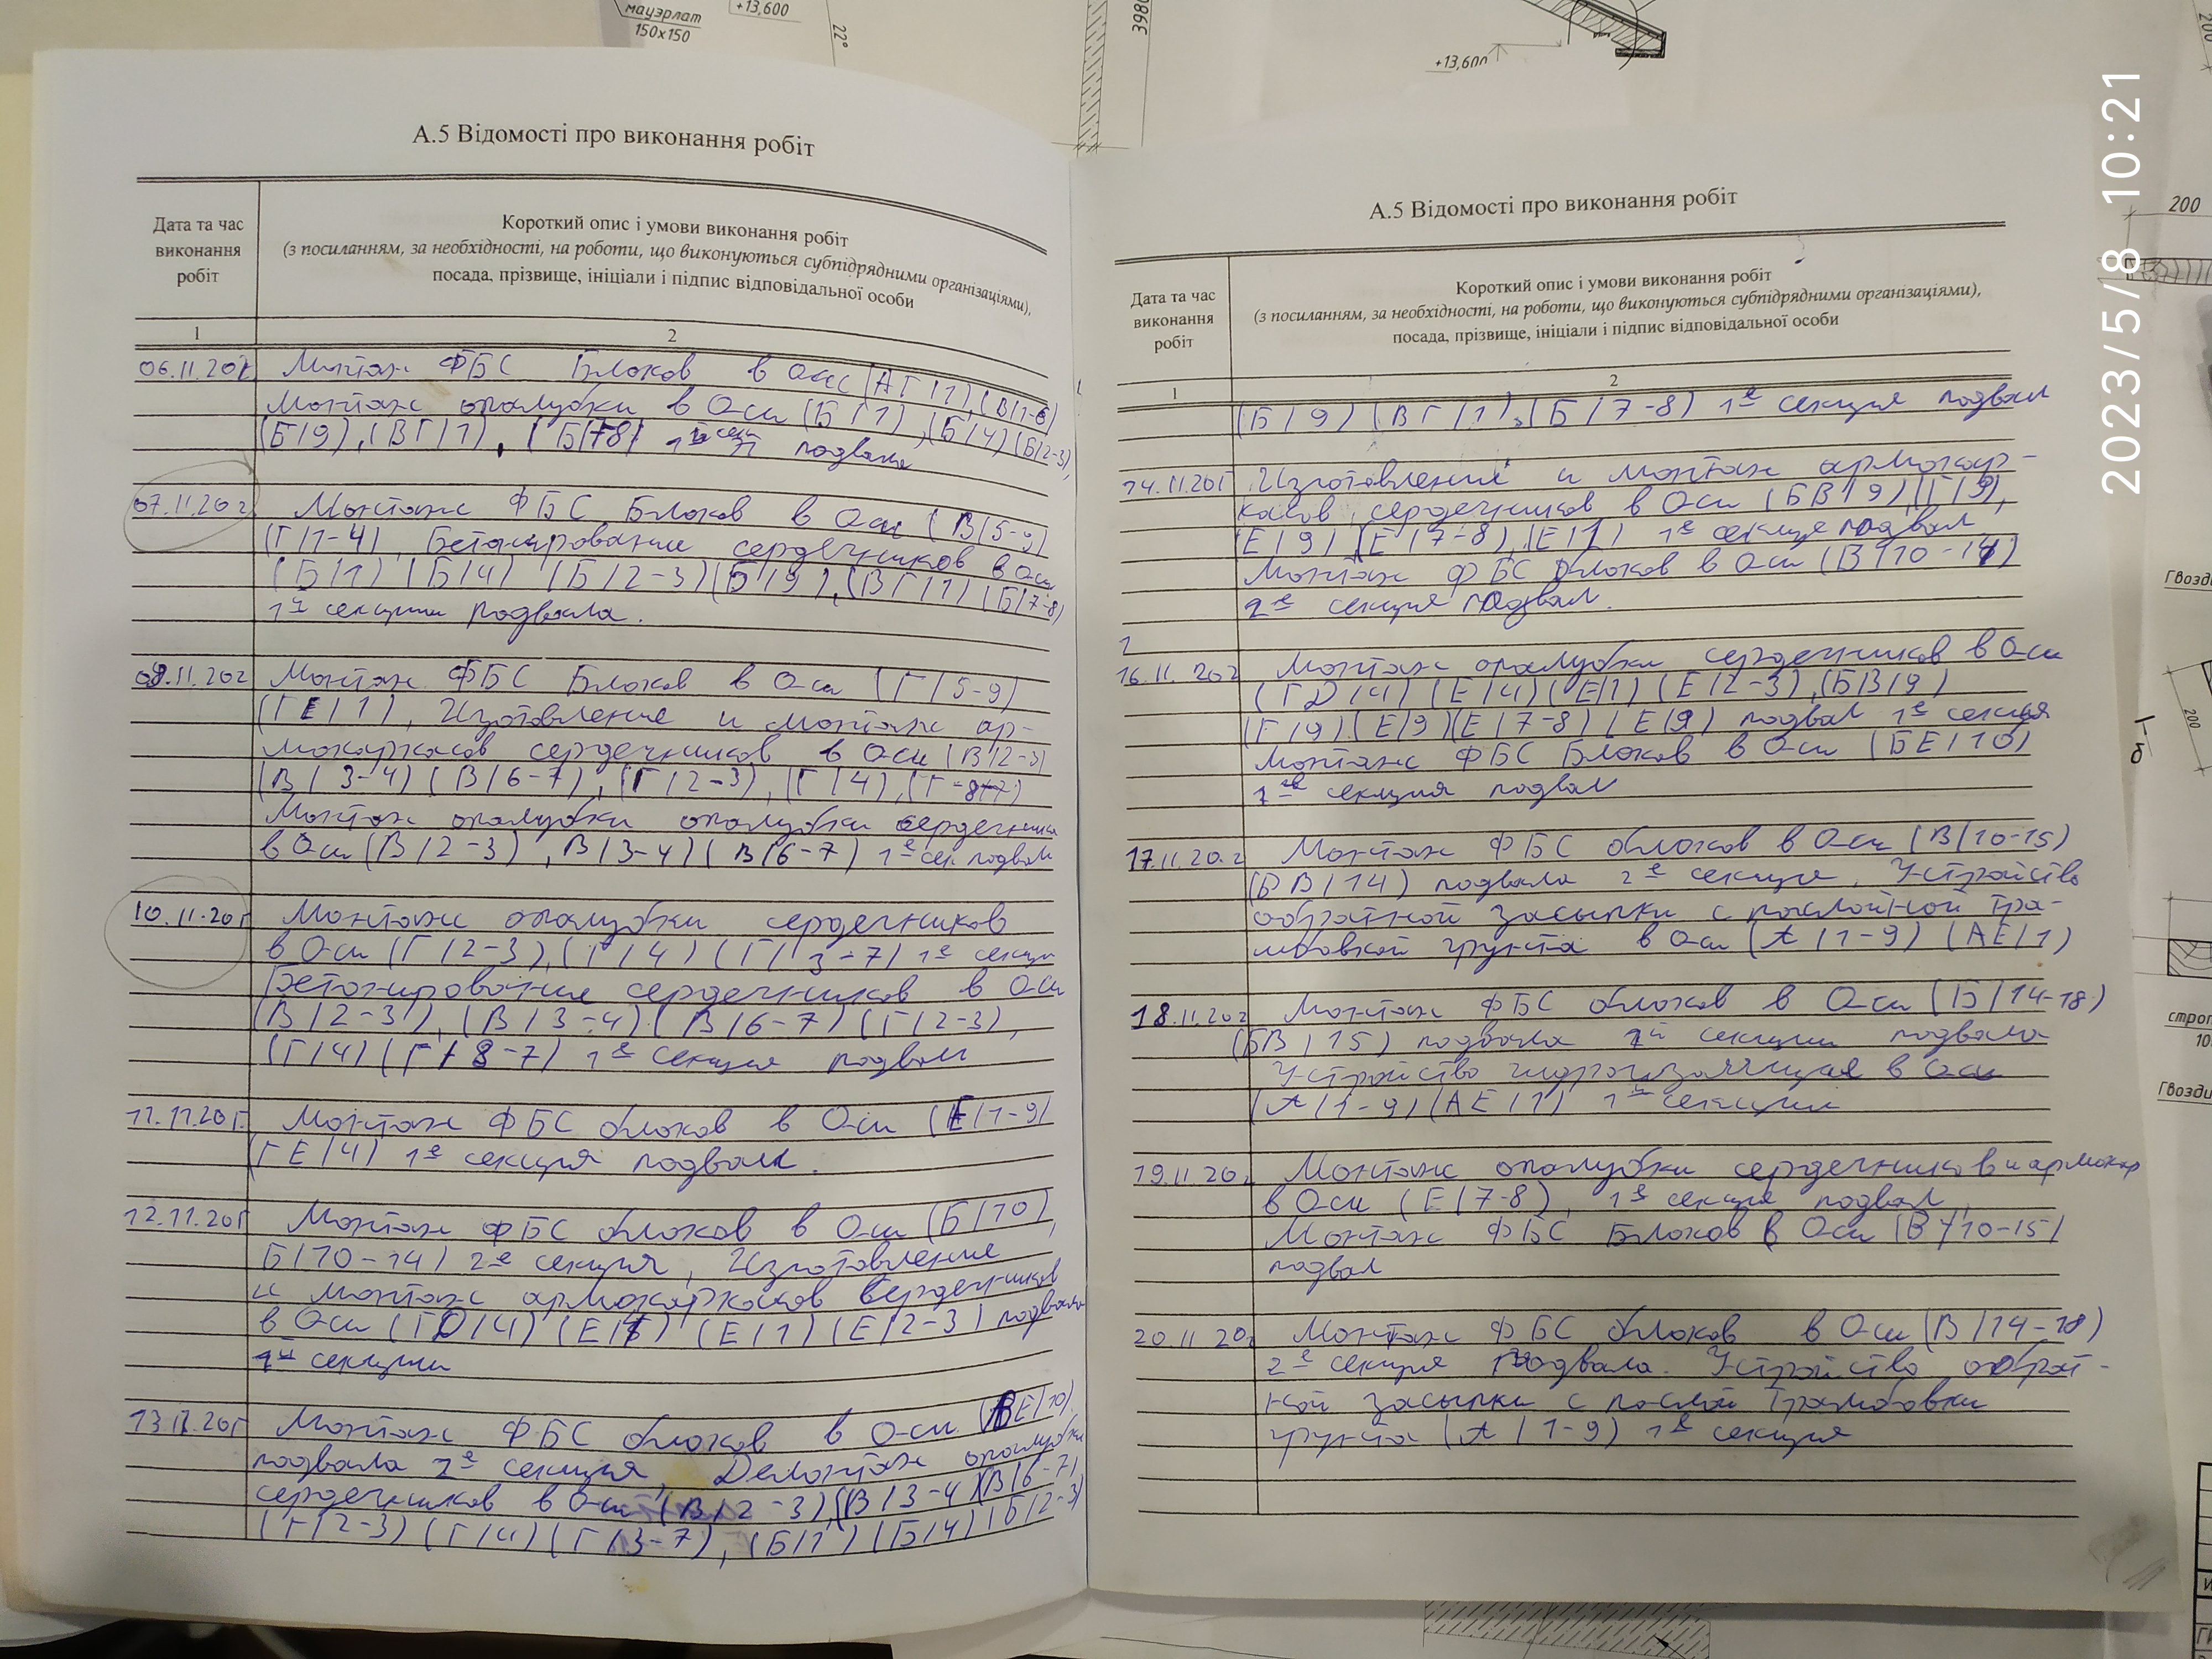 мауэрлат
150х150
+13,600
22°
3980
+13,600
200
2023/5/8 10:21
А.5 Відомості про виконання робіт
Дата та час виконання робіт
Короткий опис і умови виконання робіт
(з посиланням, за необхідності, на роботи, що виконуються субпідрядними організаціями),
посада, прізвище, ініціали і підпис відповідальної особи
1 2
06.11.20г. Монтаж ФБС Блоков в Оси (АГ/1), (В/1-6)
Монтаж опалубки в Оси (БГ/1), (Б/4) (Б/2-3),
(Б/9), (ВГ/1), (Б/78) 1й секц подвала
07.11.20г. Монтаж ФБС Блоков в Оси (В/5-9)
(Г/1-4), Бетонирование сердечников в Оси
(Б/1) (Б/4) (Б/2-3) (Б/9), (ВГ/1) (Б/7-8)
1й секции подвала.
09.11.20г Монтаж ФБС Блоков в Оси (Г/5-9)
(ГЕ/1), Изготовление и монтаж ар-
мокаркасов сердечников в Оси (В/2-3)
(В/3-4) (В/6-7), (Г/2-3), (Г/4), (Г-8
Монтаж опалубки опалубки сердечника
в Оси (В/2-3), В/3-4) (В/6-7) 1е сек подвал
10.11.20г Монтаж опалубки сердечников
в Оси (Г/2-3), (Г/4) (Г/3-7) 1е секции
Бетонирование сердечников в Оси
(В/2-3), (В/3-4) (В/6-7) (Г/2-3),
(Г/4) (Г/8-7) 1е секция подвал
11.11.20г. Монтаж ФБС блоков в Оси (Е/1-9)
(ГЕ/4) 1е секция подвал.
12.11.20г Монтаж ФБС блоков в Оси (Б/10),
Б/10-14) 2е секция, Изготовление
и монтаж армокаркасов сердечников
в Оси (ГД/4) (Е/ (Е/1) (Е/2-3) подвала
1й секции
13.11.20г Монтаж ФБС блоков в Оси (ВЕ/10),
подвала 2е секция, Демонтаж опалубки
сердечников в Оси (В/2-3), (В/3-4) (В/6-7)
(Г/2-3) (Г/4) (Г/3-7), (Б/1) (Б/4) (Б/2-3)
А.5 Відомості про виконання робіт
Дата та час виконання робіт
Короткий опис і умови виконання робіт
(з посиланням, за необхідності, на роботи, що виконуються субпідрядними організаціями),
посада, прізвище, ініціали і підпис відповідальної особи
1 2
(Б/9) (ВГ/1), (Б/7-8) 1е секция подвал
14.11.20г Изготовление и монтаж армокар-
касов сердечников в Оси (БВ/9) (Г/9),
(Е/9) (Е/7-8), (Е/1) 1е секция подвал
Монтаж ФБС блоков в Оси (В/10-14)
2е секция подвал.
16.11.20г Монтаж опалубки сердечников в Оси
(ГД/4) (Е/4) (Е/1) (Е/2-3), (БВ/9)
(Г/9) (Е/9) (Е/7-8) (Е/9) подвал 1е секция
Монтаж ФБС Блоков в Оси (БЕ/10)
секция подвал
17.11.20г Монтаж ФБС блоков в Оси (В/10-15)
(БВ/14) подвала 2е секция. Устройство
обратной засыпки с послойной тра-
мбовкой грунта в Оси (А/1-9) (АЕ/1)
18.11.20г Монтаж ФБС блоков в Оси (Б/14-18)
(БВ/15) подвала секции подвала
Устройство гидроизоляция в Оси
(А/1-9) (АЕ/1) 1й секции
19.11.20г Монтаж опалубки сердечников и армокар
в Оси (Е/7-8), 1е секция подвал,
Монтаж ФБС Блоков в Оси (В/10-15)
подвал
20.11.20г Монтаж ФБС блоков в Оси (В/14-18)
2е секция подвала. Устройство обрат-
ной засыпки с послой трамбовки
грунта (А/1-9) 1е секция
Гвозд
200
б
строп
Гвозди